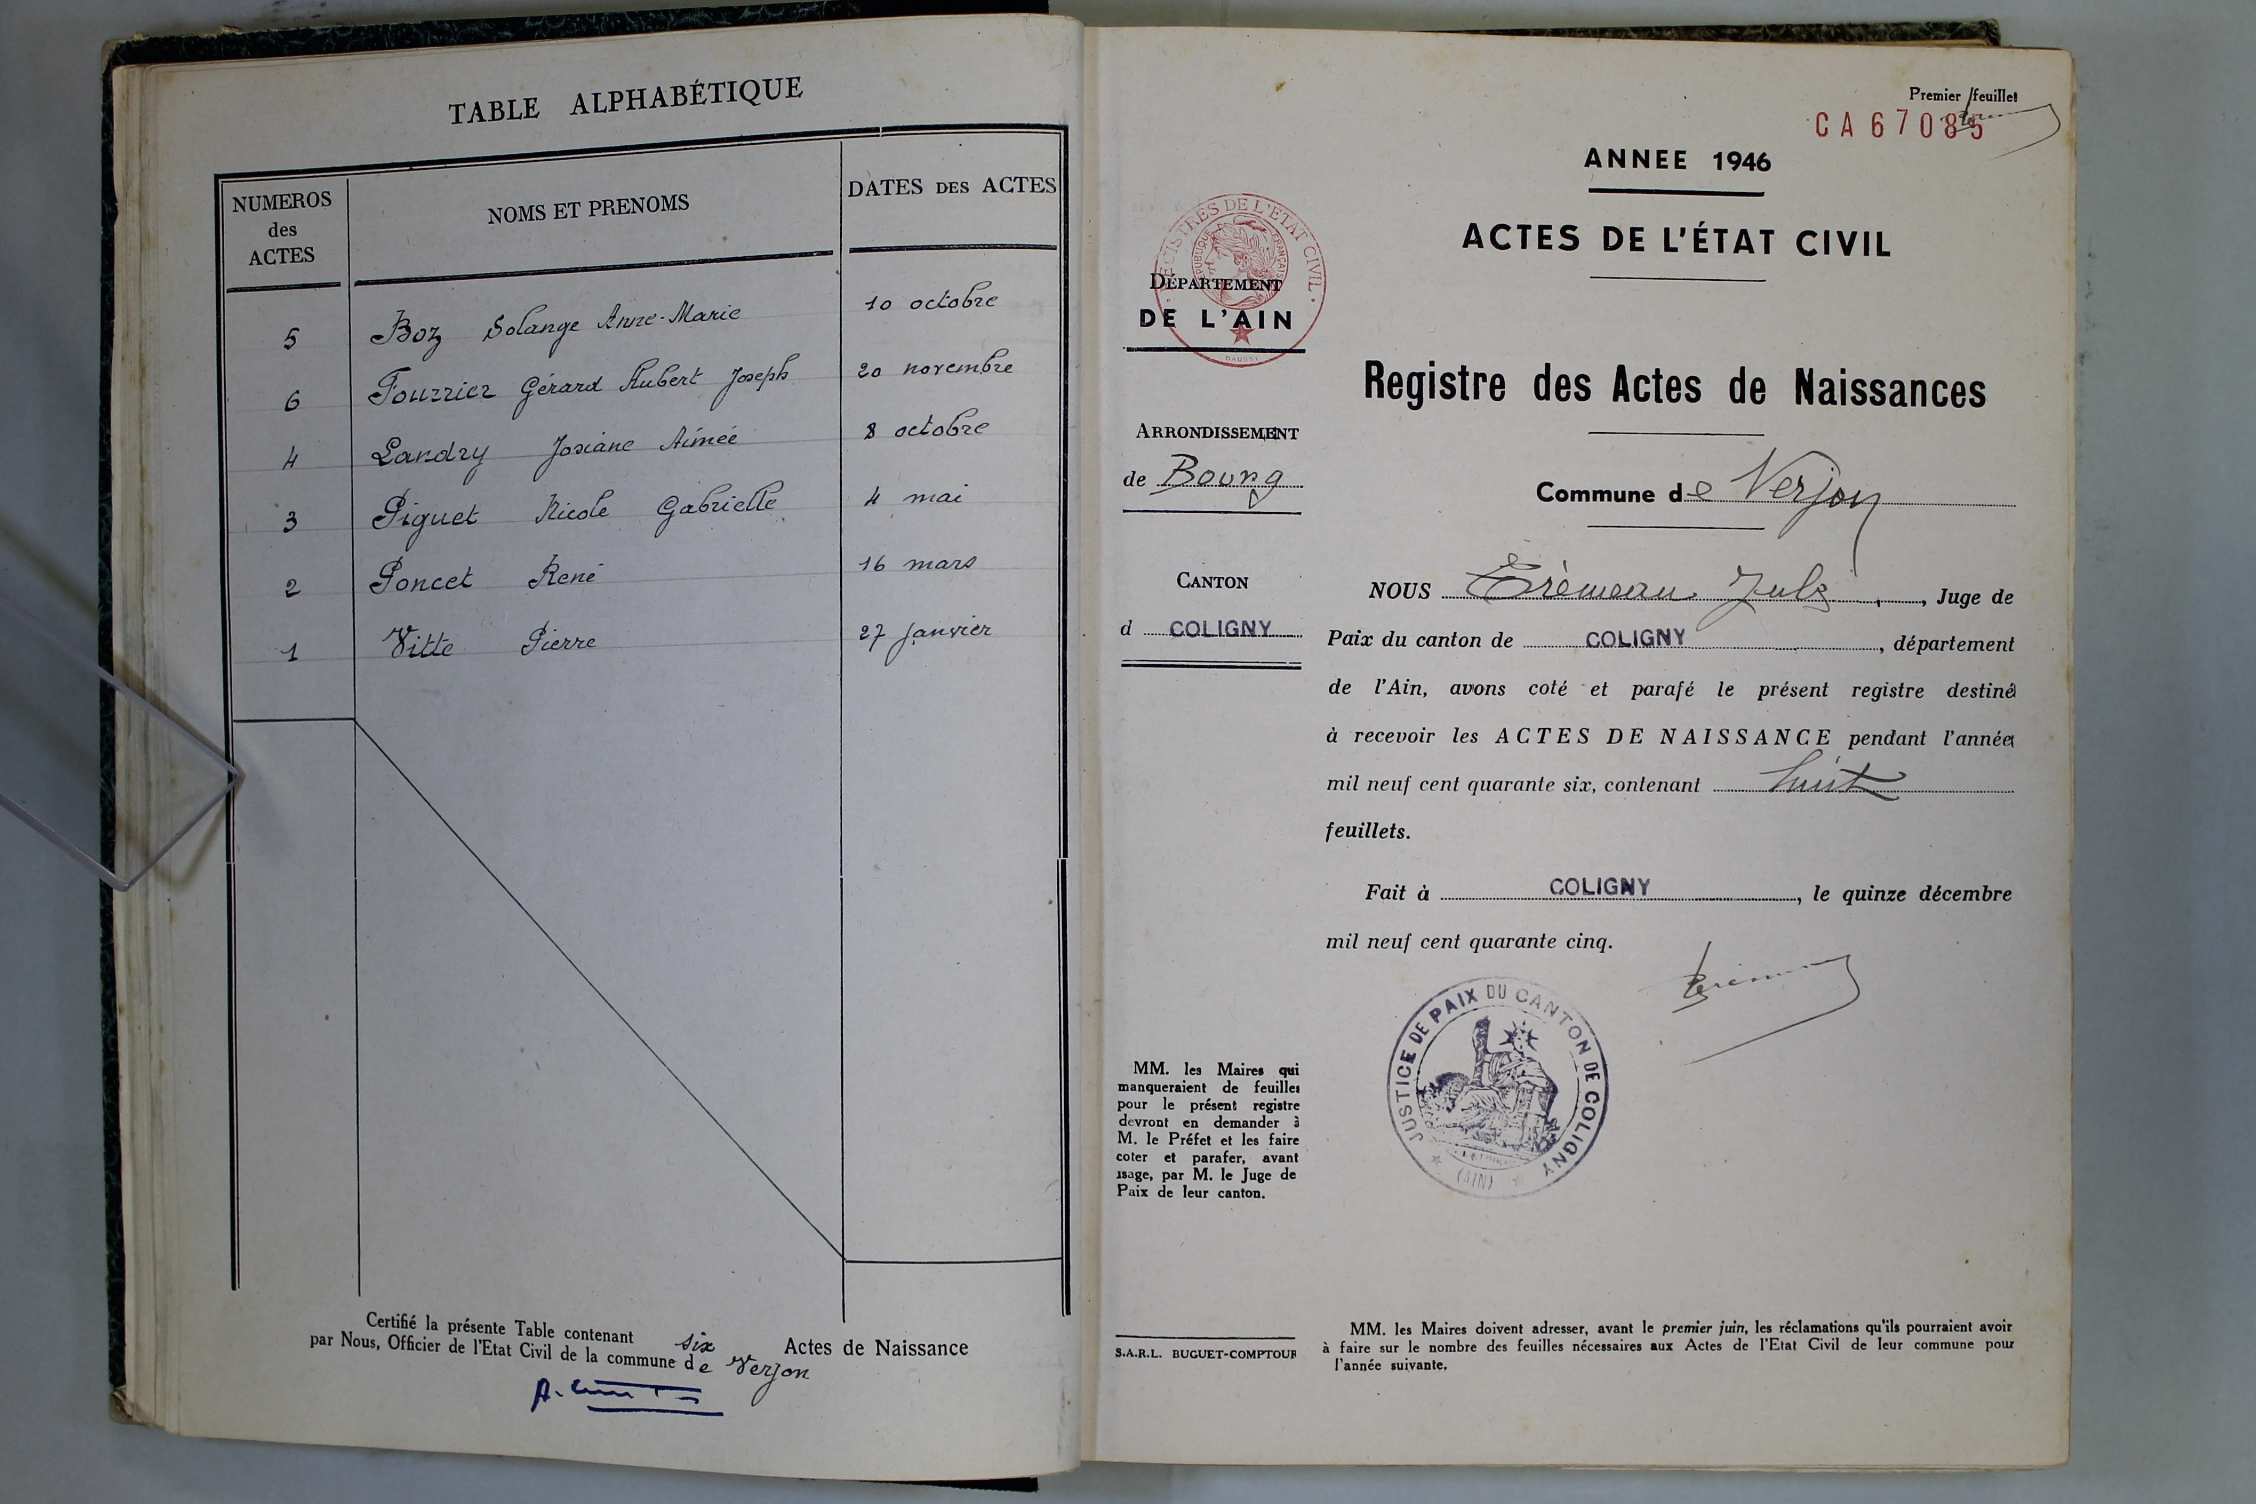 TABLE ALPHABÉTIQUE
NUMEROS
des
ACTES
NOMS ET PRENOMS
DATES DES ACTES
5 Boz Solange Anne-Marie 10 octobre
6 Fourrier Gérard Hubert Joseph 20 novembre
4 Landry Josiane Aimée 8 octobre
3 Piguet Nicole Gabrielle 4 mai
2 Poncet René 16 mars
1 Vitte Pierre 27 janvier
Certifié la présente Table contenant six Actes de Naissance
par Nous, Officier de l'Etat Civil de la commune de Verjon
Premier feuillet
CA67085
ANNEE 1946
ACTES DE L'ÉTAT CIVIL
REGISTRES DE L'ÉTAT CIVIL
RÉPUBLIQUE FRANÇAISE
DÉPARTEMENT
DE L'AIN
Registre des Actes de Naissances
ARRONDISSEMENT
de Bourg
Commune de Verjon
CANTON
d COLIGNY
NOUS Trémeau Jules, Juge de
Paix du canton de COLIGNY, département
de l'Ain, avons coté et parafé le présent registre destiné
à recevoir les ACTES DE NAISSANCE pendant l'année
mil neuf cent quarante six, contenant huit
feuillets.
Fait à COLIGNY, le quinze décembre
mil neuf cent quarante cinq.
JUSTICE DE PAIX DU CANTON DE COLIGNY
(AIN)
MM. les Maires qui
manqueraient de feuilles
pour le présent registre
devront en demander à
M. le Préfet et les faire
coter et parafer, avant
usage, par M. le Juge de
Paix de leur canton.
S.A.R.L. BUGUET-COMPTOUR
MM. les Maires doivent adresser, avant le premier juin, les réclamations qu'ils pourraient avoir
à faire sur le nombre des feuilles nécessaires aux Actes de l'Etat Civil de leur commune pour
l'année suivante.